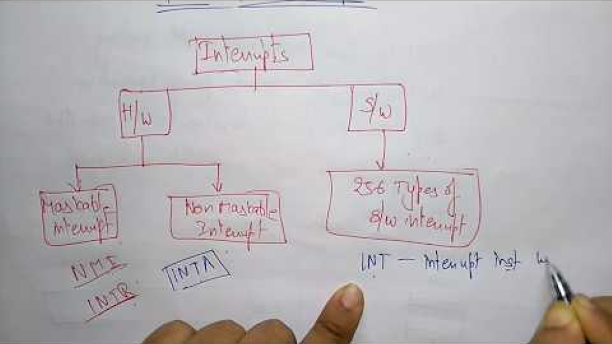 Interrupts
H/W
S/W
Maskable
interrupt
Non Maskable
Interrupt
256 Types of
S/W interrupt
NMI
INTR
INTA
INT – interrupt inst